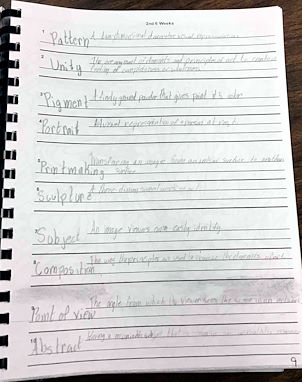 2nd 6 Weeks
1 Pattern A two dimensional decorative visual
2 Unity The arrangement of elements and principles of art to create a
feeling of completeness or wholeness
3 Pigment A finely ground powder that gives paint its color
4 Portrait A visual representation of a person
5 Printmaking Transferring an image from an inked surface to another
surface
6 Sculpture A three dimensional work of art
7 Subject An image viewers can easily identify
8 Composition The way the principles are used to the elements of art
9 Point of view The angle from which the viewer sees the
10 Abstract
9